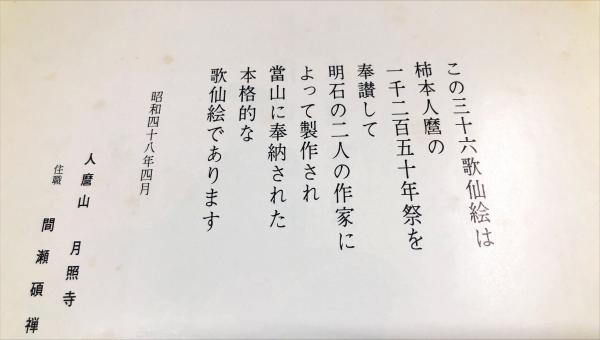 この三十六歌仙絵は
柿本人麿の
一千二百五十年祭を
奉讃して
明石の二人の作家に
よって製作され
當山に奉納された
本格的な
歌仙絵であります
昭和四十八年四月
人麿山 月照寺
住職 間瀬碩禅